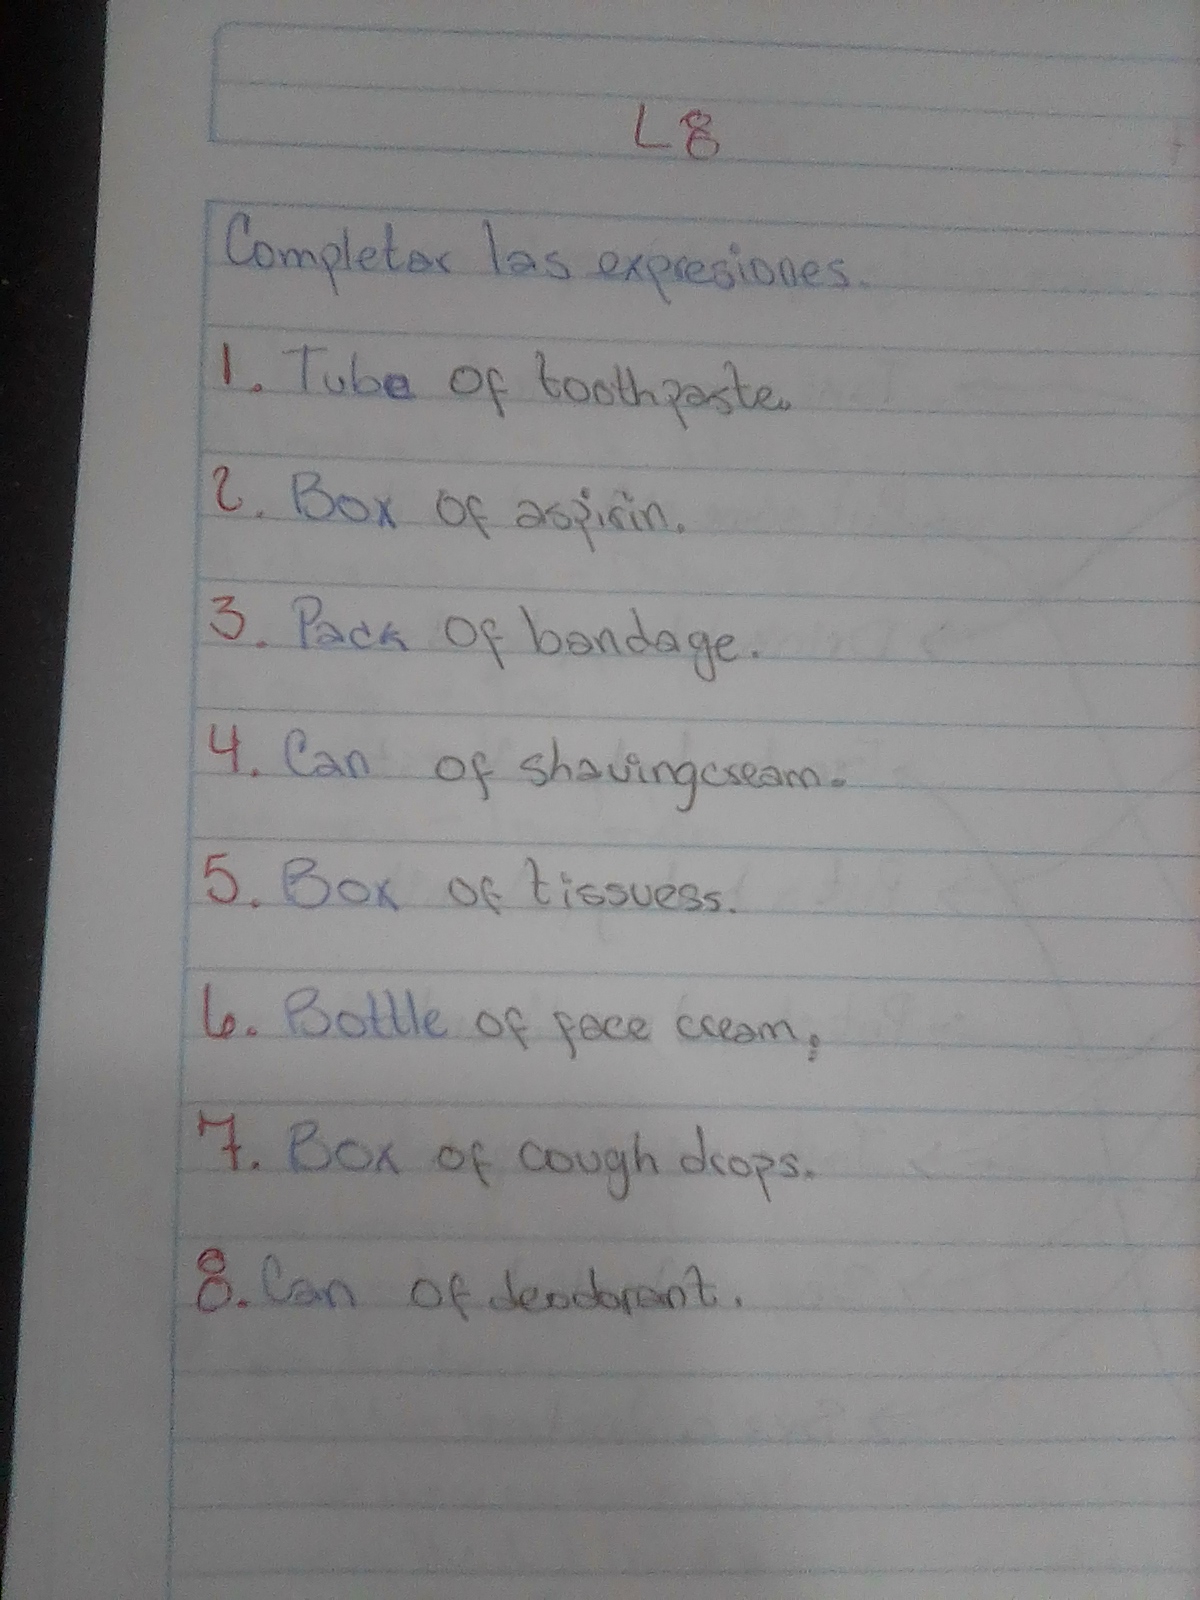 L8
Completar las expresiones.
1. Tube of toothpaste.
2. Box of aspirin.
3. Pack of bandage.
4. Can of shavingcream.
5. Box of tissuess.
6. Bottle of face cream.
7. Box of cough drops.
8. Can of deodorant.